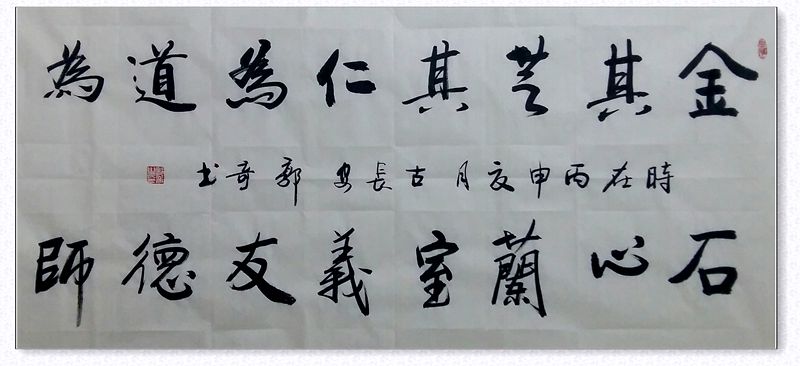 金石
其心
芝蘭
其室
仁義
為友
道德
為師
時在丙申亥月古長安郭奇书